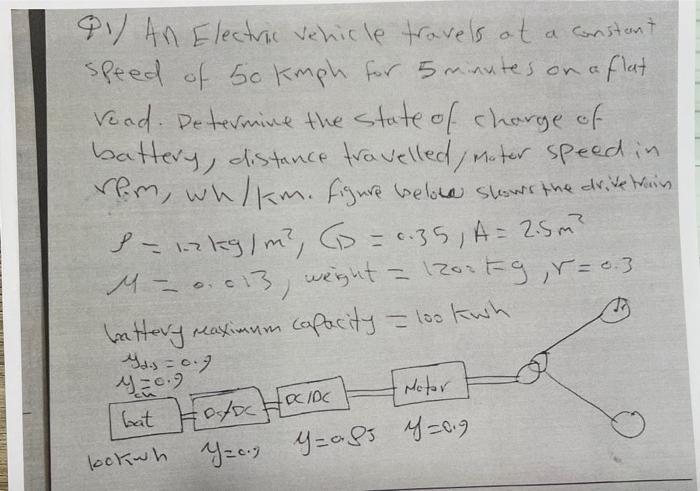 Q1/ An Electric vehicle travels at a constant
speed of 50 kmph for 5 minutes on a flat
road. Determine the state of charge of
battery, distance travelled, motor speed in
rpm, wh/km. figure below shows the drive train
ρ = 1.2 kg/m³, CD = 0.35, A = 2.5 m²
M = 0.013, weight = 1200 kg, r = 0.3
battery maximum capacity = 100 kwh
η dis = 0.9
η ch = 0.9
bat
DC/DC
Motor
100kwh
η = 0.9
η = 0.85
η = 0.9